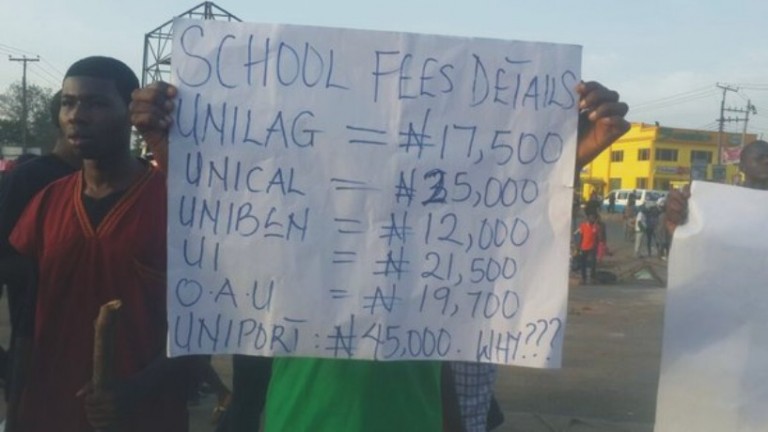 SCHOOL FEES DETAILS
UNILAG = ₦17,500
UNICAL = ₦35,000
UNIBEN = ₦12,000
UI = ₦21,500
O.A.U = ₦19,700
UNIPORT : ₦45,000. WHY???